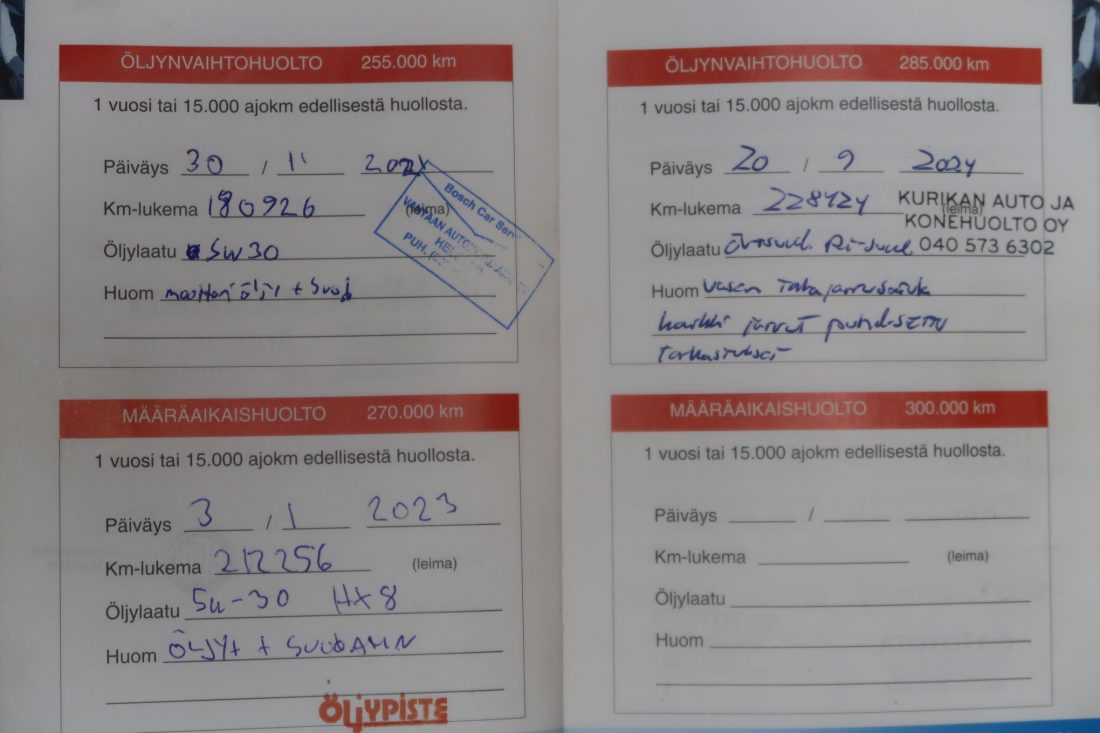 ÖLJYNVAIHTOHUOLTO 255.000 km
1 vuosi tai 15.000 ajokm edellisestä huollosta.
Päiväys 30 / 11 2021
Km-lukema 190926 (leima)
Bosch Car Serv
PUH.
Öljylaatu 5W30
Huom moottoriöljy + suod
MÄÄRÄAIKAISHUOLTO 270.000 km
1 vuosi tai 15.000 ajokm edellisestä huollosta.
Päiväys 3 / 1 2023
Km-lukema 212256 (leima)
Öljylaatu 5W-30 HX8
Huom ÖLJYT + SUODATIN
ÖLJYPISTE
ÖLJYNVAIHTOHUOLTO 285.000 km
1 vuosi tai 15.000 ajokm edellisestä huollosta.
Päiväys 20 / 9 2024
Km-lukema 228424 (leima)
KURIKAN AUTO JA
KONEHUOLTO OY
040 573 6302
Öljylaatu
Huom Vasen takajarrusatula
kaikki jarrut puhdistettu
tarkastukset
MÄÄRÄAIKAISHUOLTO 300.000 km
1 vuosi tai 15.000 ajokm edellisestä huollosta.
Päiväys /
Km-lukema (leima)
Öljylaatu
Huom